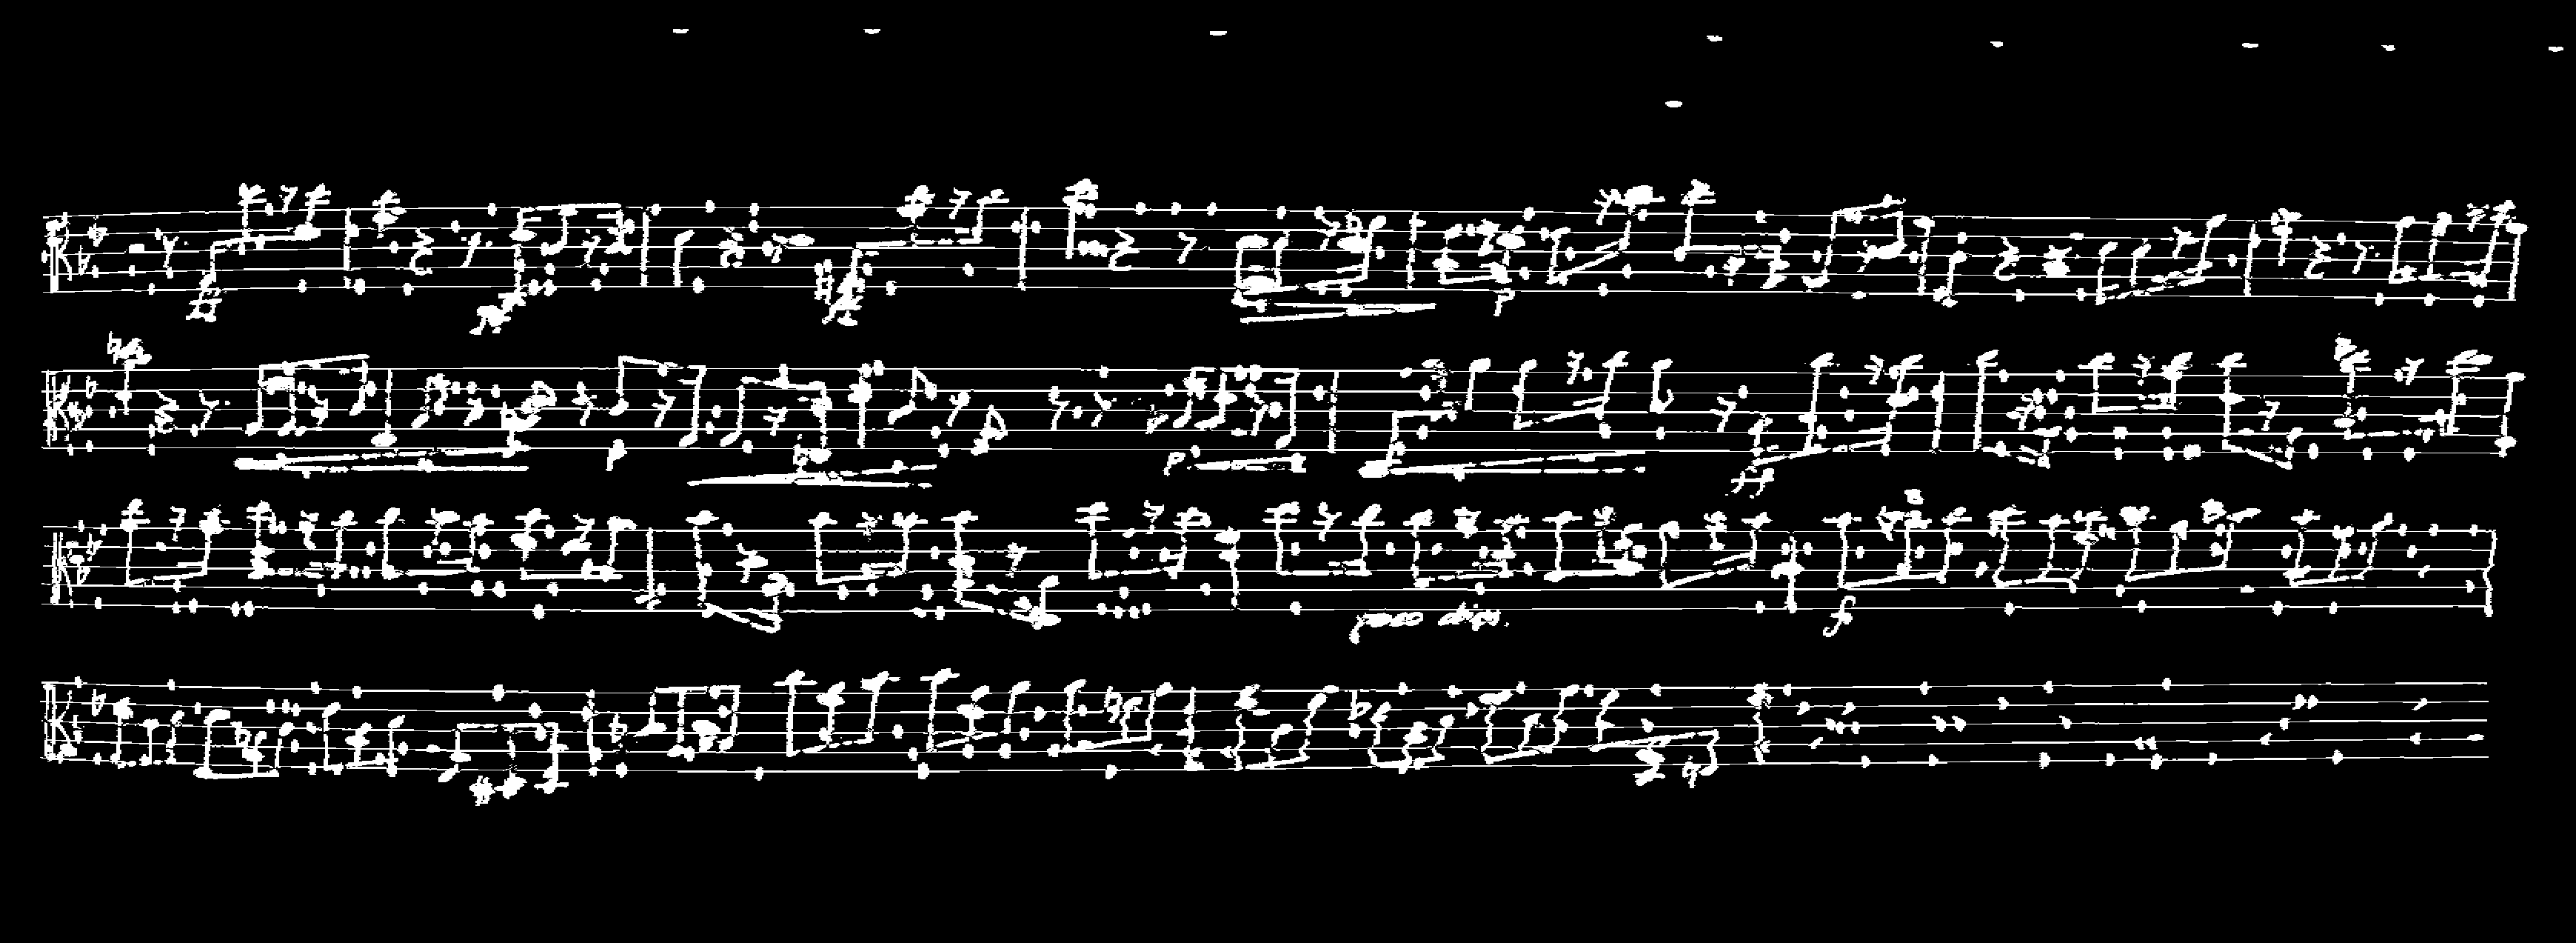 p
p
p
ff
poco dim.
f